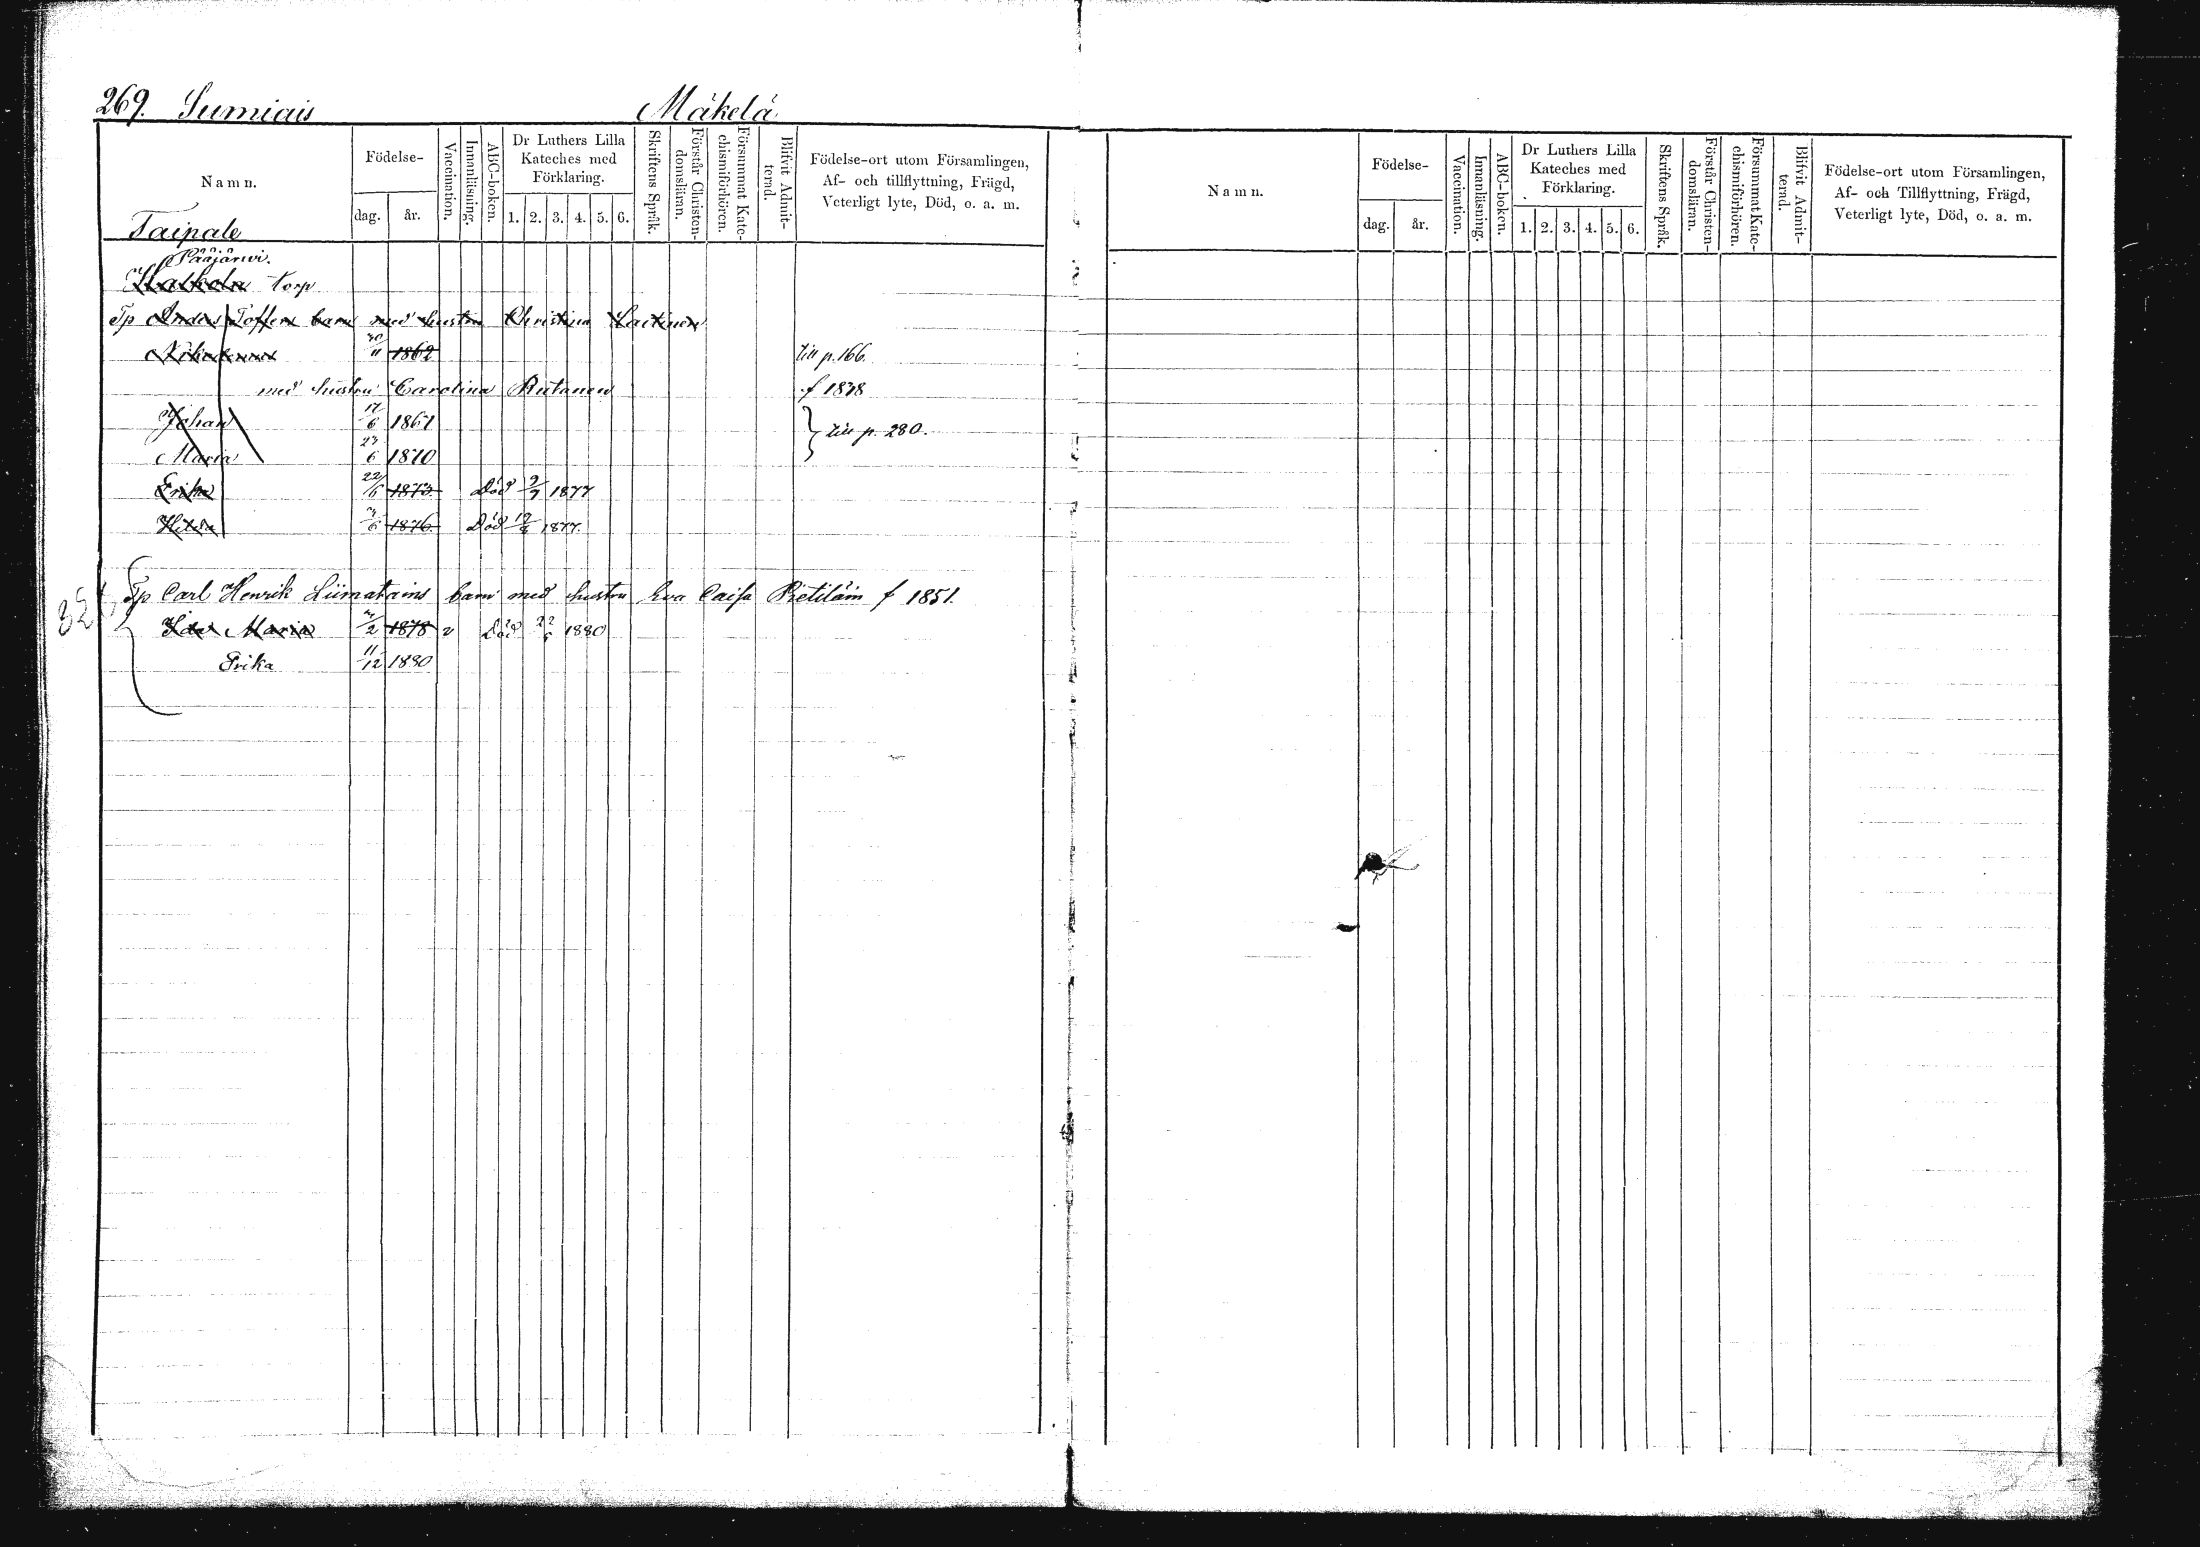 269. Sumiais Mäkelä
Namn. Födelse- dag. år. Vaccination. Innanläsning. ABC-boken. Dr Luthers Lilla Kateches med Förklaring. 1. 2. 3. 4. 5. 6. Skriftens Språk. Förstår Christendomsläran. Försummat Katechismiförhören. Blifvit Admitterad. Födelse-ort utom Församlingen, Af- och tillflyttning, Frägd, Veterligt lyte, Död, o. a. m.
Taipale
Pääjärwi.
torp
Tp Toffers barn med hustru Christina Laitinen
30/11 1862 till p. 166.
med hustru Carolina Rutanen f 1838
Johan 17/6 1867
Maria 23/6 1870 } till p. 280.
Erika 22/6 1873 Död 9/7 1877
Hilda 6 1876 Död 19 1877.
Tp Carl Henrik Liimatains barn med hustru Eva Caisa Pietiläin f 1851.
Ida Maria 2 1878 v Död 22 1880
Erika 11/12 1880
Namn. Födelse- dag. år. Vaccination. Innanläsning. ABC-boken. Dr Luthers Lilla Kateches med Förklaring. 1. 2. 3. 4. 5. 6. Skriftens Språk. Förstår Christendomsläran. Försummat Katechismiförhören. Blifvit Admitterad. Födelse-ort utom Församlingen, Af- och Tillflyttning, Frägd, Veterligt lyte, Död, o. a. m.